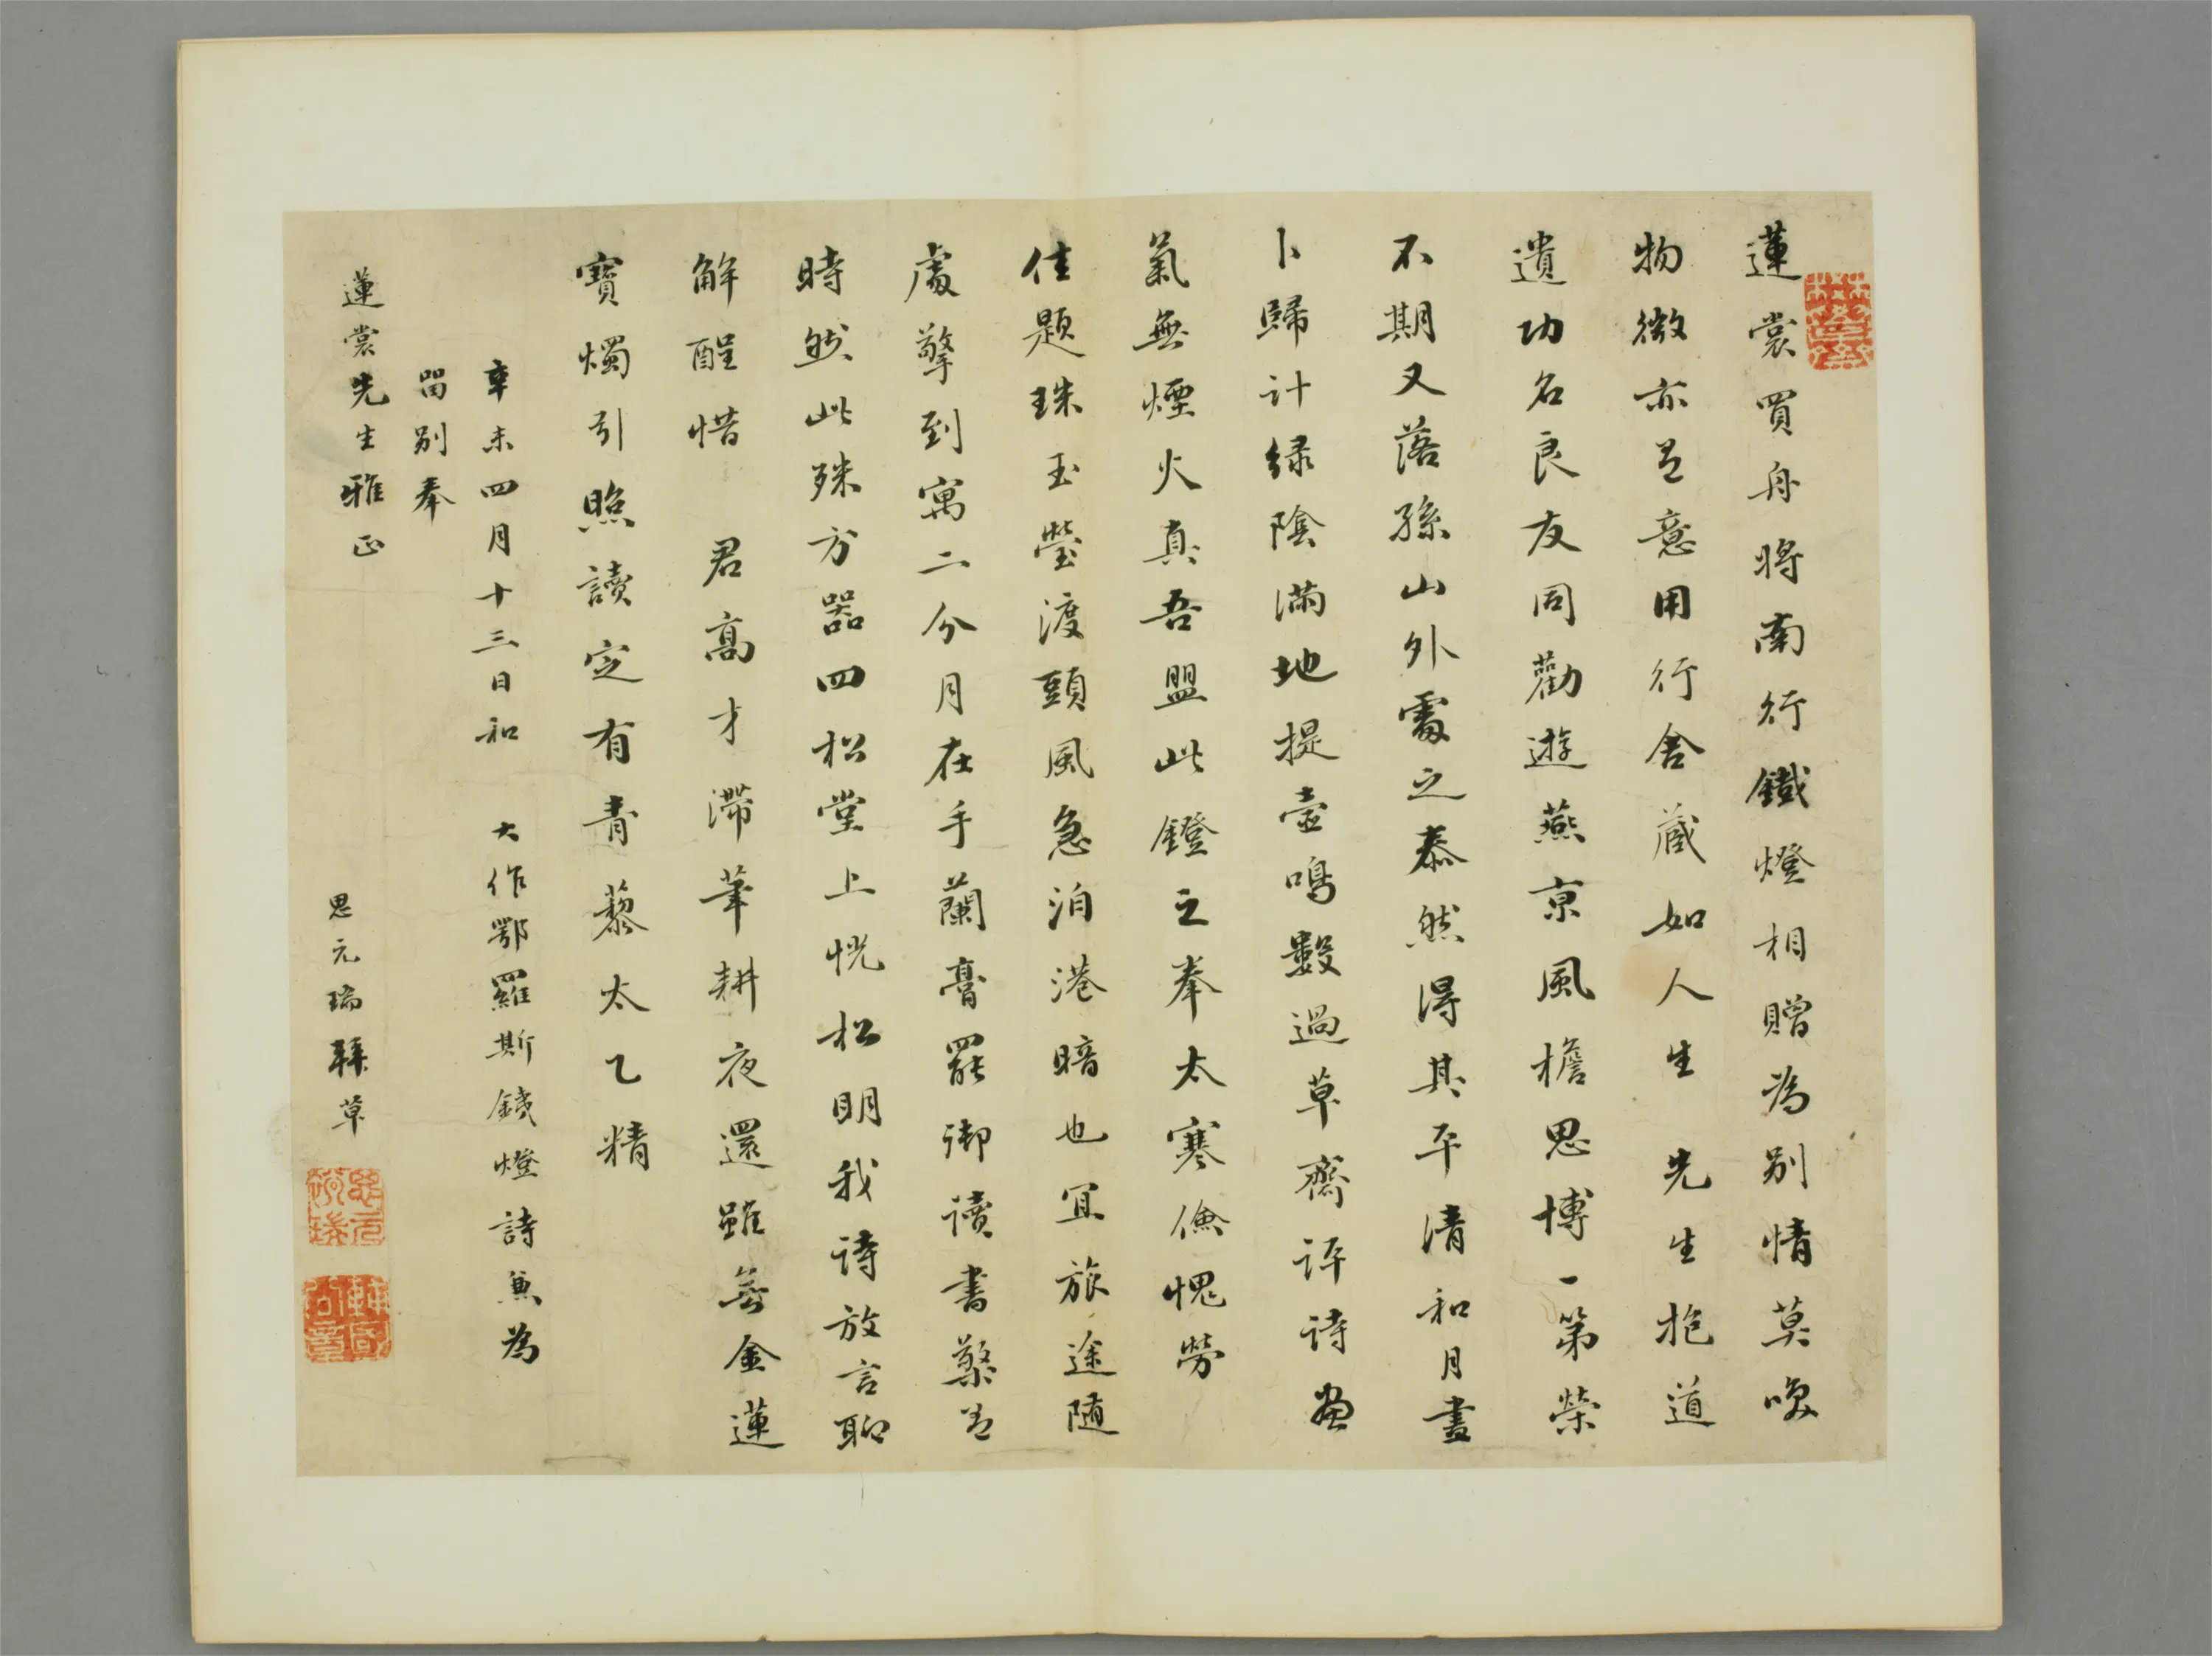 蓮裳買舟將南行鐵燈相贈為別情莫嗅
物微亦已意用行舍藏如人生先生抱道
遺功名良友同勸遊燕京風檐思博一第榮
不期又落孫山外處之泰然得其平清和月晝
卜歸計綠陰滿地提壺鳴數過草齋評詩畫
氣無煙火真吾盟此鐙之奉太寒儉愧勞
佳題珠玉瑩渡頭風急泊港暗也宜旅途隨
處擎到寓二分月在手蘭膏罷御讀書檠若
時然此殊方器四松堂上恍松明我詩放言聊
解酲惜君高才滯筆耕夜還雖無金蓮
寶燭引照讀定有青藜太乙精
辛未四月十三日和大作鄂羅斯鐵燈詩兼為
留別奉
蓮裳先生雅正
思元瑞藄草